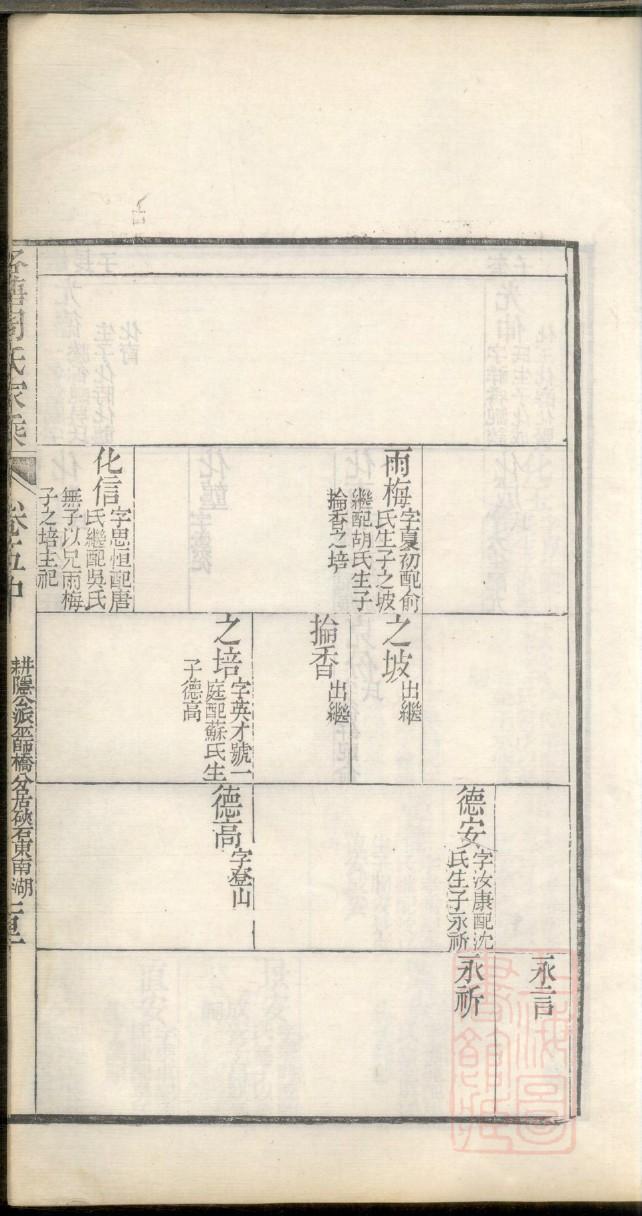 雨梅
字夏初配俞
氏生子之坡
繼配胡氏生子
掄香之培
化信
字忠恒配唐
氏繼配吳氏
無子以兄雨梅
子之培主祀
之坡
出繼
掄香
出繼
之培
字英才號一
庭配蘇氏生
子德高
德安
字汝康配沈
氏生子永祈
德高
字登山
永言
永祈
周氏家乘
卷五中
耕隱公派巫師橋分居硤石東南湖